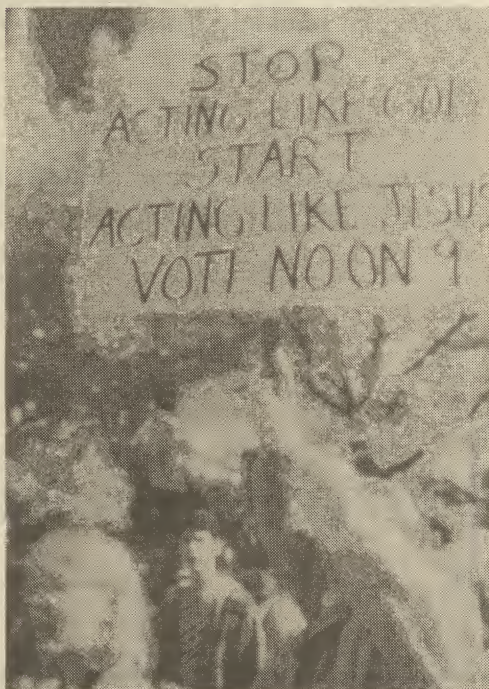 STOP
ACTING LIKE GOD
START
ACTING LIKE JESUS
VOTE NO ON 9